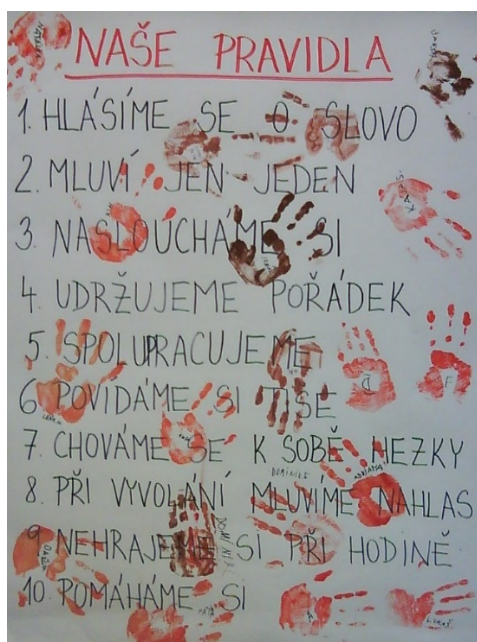 NAŠE PRAVIDLA
1. HLÁSÍME SE O SLOVO
2. MLUVÍ JEN JEDEN
3. NASLOUCHÁME SI
4. UDRŽUJEME POŘÁDEK
5. SPOLUPRACUJEME
6. POVÍDÁME SI TIŠE
7. CHOVÁME SE K SOBĚ HEZKY
DOMINIK
ADRIANA
8. PŘI VYVOLÁNÍ MLUVÍME NAHLAS
9. NEHRAJEME SI PŘI HODINĚ
10. POMÁHÁME SI